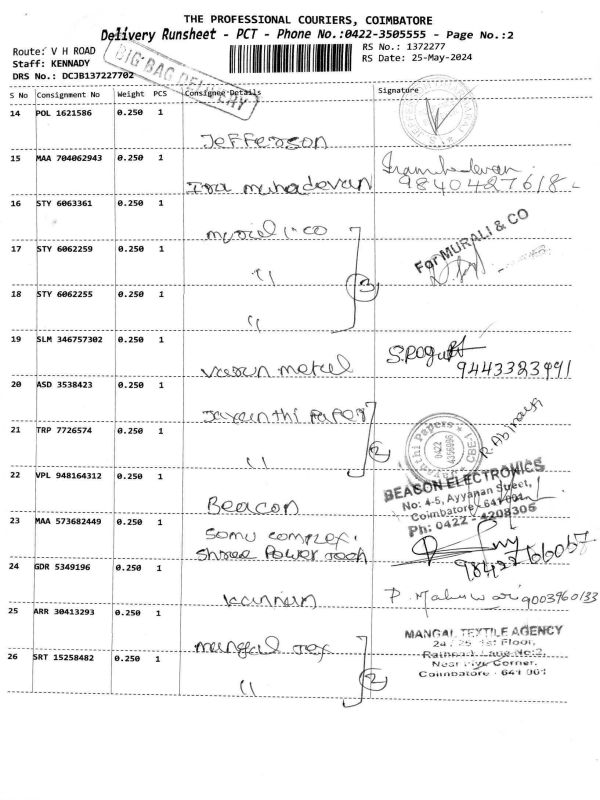 THE PROFESSIONAL COURIERS, COIMBATORE
Delivery Runsheet - PCT - Phone No.:0422-3505555 - Page No.:2
Route: V H ROAD
RS No.: 1372277
Staff: KENNADY
RS Date: 25-May-2024
DRS No.: DCJB137227702
BIG BAG DELIVERY
S No Consignment No Weight PCS Consignee Details Signature
14 POL 1621586 0.250 1
Jefferson
15 MAA 704062943 0.250 1
Mahadevan
9840427618
16 STY 6063361 0.250 1
For MURALI & CO
17 STY 6062259 0.250 1
"
3
18 STY 6062255 0.250 1
"
19 SLM 346757302 0.250 1
Varun metal
9443323491
20 ASD 3538423 0.250 1
Jayanthi Paper
21 TRP 7726574 0.250 1
"
2
Jayanthi Papers
0422
4356996
CBE-1
R. Abinaya
22 VPL 948164312 0.250 1
Beacon
BEASON ELECTRONICS
No: 4-5, Ayyanan Street,
Coimbatore - 641 001
Ph: 0422 - 4208306
23 MAA 573682449 0.250 1
Somu complex.
Shree Power Tech
24 GDR 5349196 0.250 1
Kannan
9003960133
25 ARR 30413293 0.250 1
Mangal Tex
26 SRT 15258482 0.250 1
"
2
MANGAL TEXTILE AGENCY
24 / 25 1st Floor,
Rathna Lane No:2,
Near Five Corner,
Coimbatore - 641 001